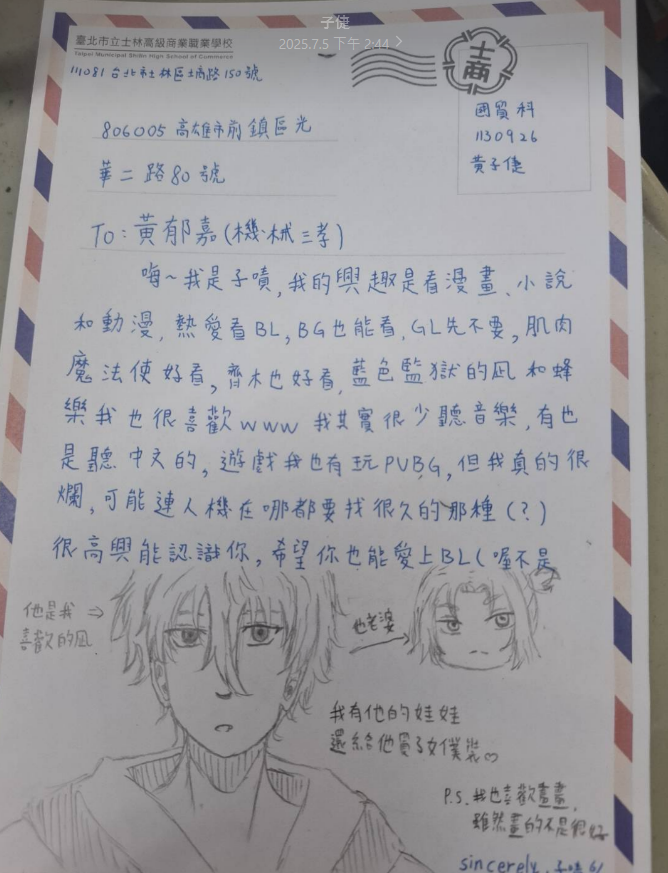 子倢
2025.7.5 下午 2:44
臺北市立士林高級商業職業學校
Taipei Municipal Shilin High School of Commerce
111081 台北市士林區士商路150號
士商
國貿科
1130926
黃子倢
806005 高雄市前鎮區光
華二路80號
To: 黃郁嘉(機械三孝)
嗨~我是子嘖,我的興趣是看漫畫、小說
和動漫,熱愛看BL,BG也能看,GL先不要,肌肉
魔法使好看,齊木也好看,藍色監獄的凪和蜂
樂我也很喜歡www 我其實很少聽音樂,有也
是聽中文的,遊戲我也有玩PUBG,但我真的很
爛,可能連人機在哪都要找很久的那種(?)
很高興能認識你,希望你也能愛上BL(喔不是
他是我 ⇒
喜歡的凪
他老婆
我有他的娃娃
還給他買了女僕裝♡
P.S. 我也喜歡畫畫,
雖然畫的不是很好
sincerely, 子嘖